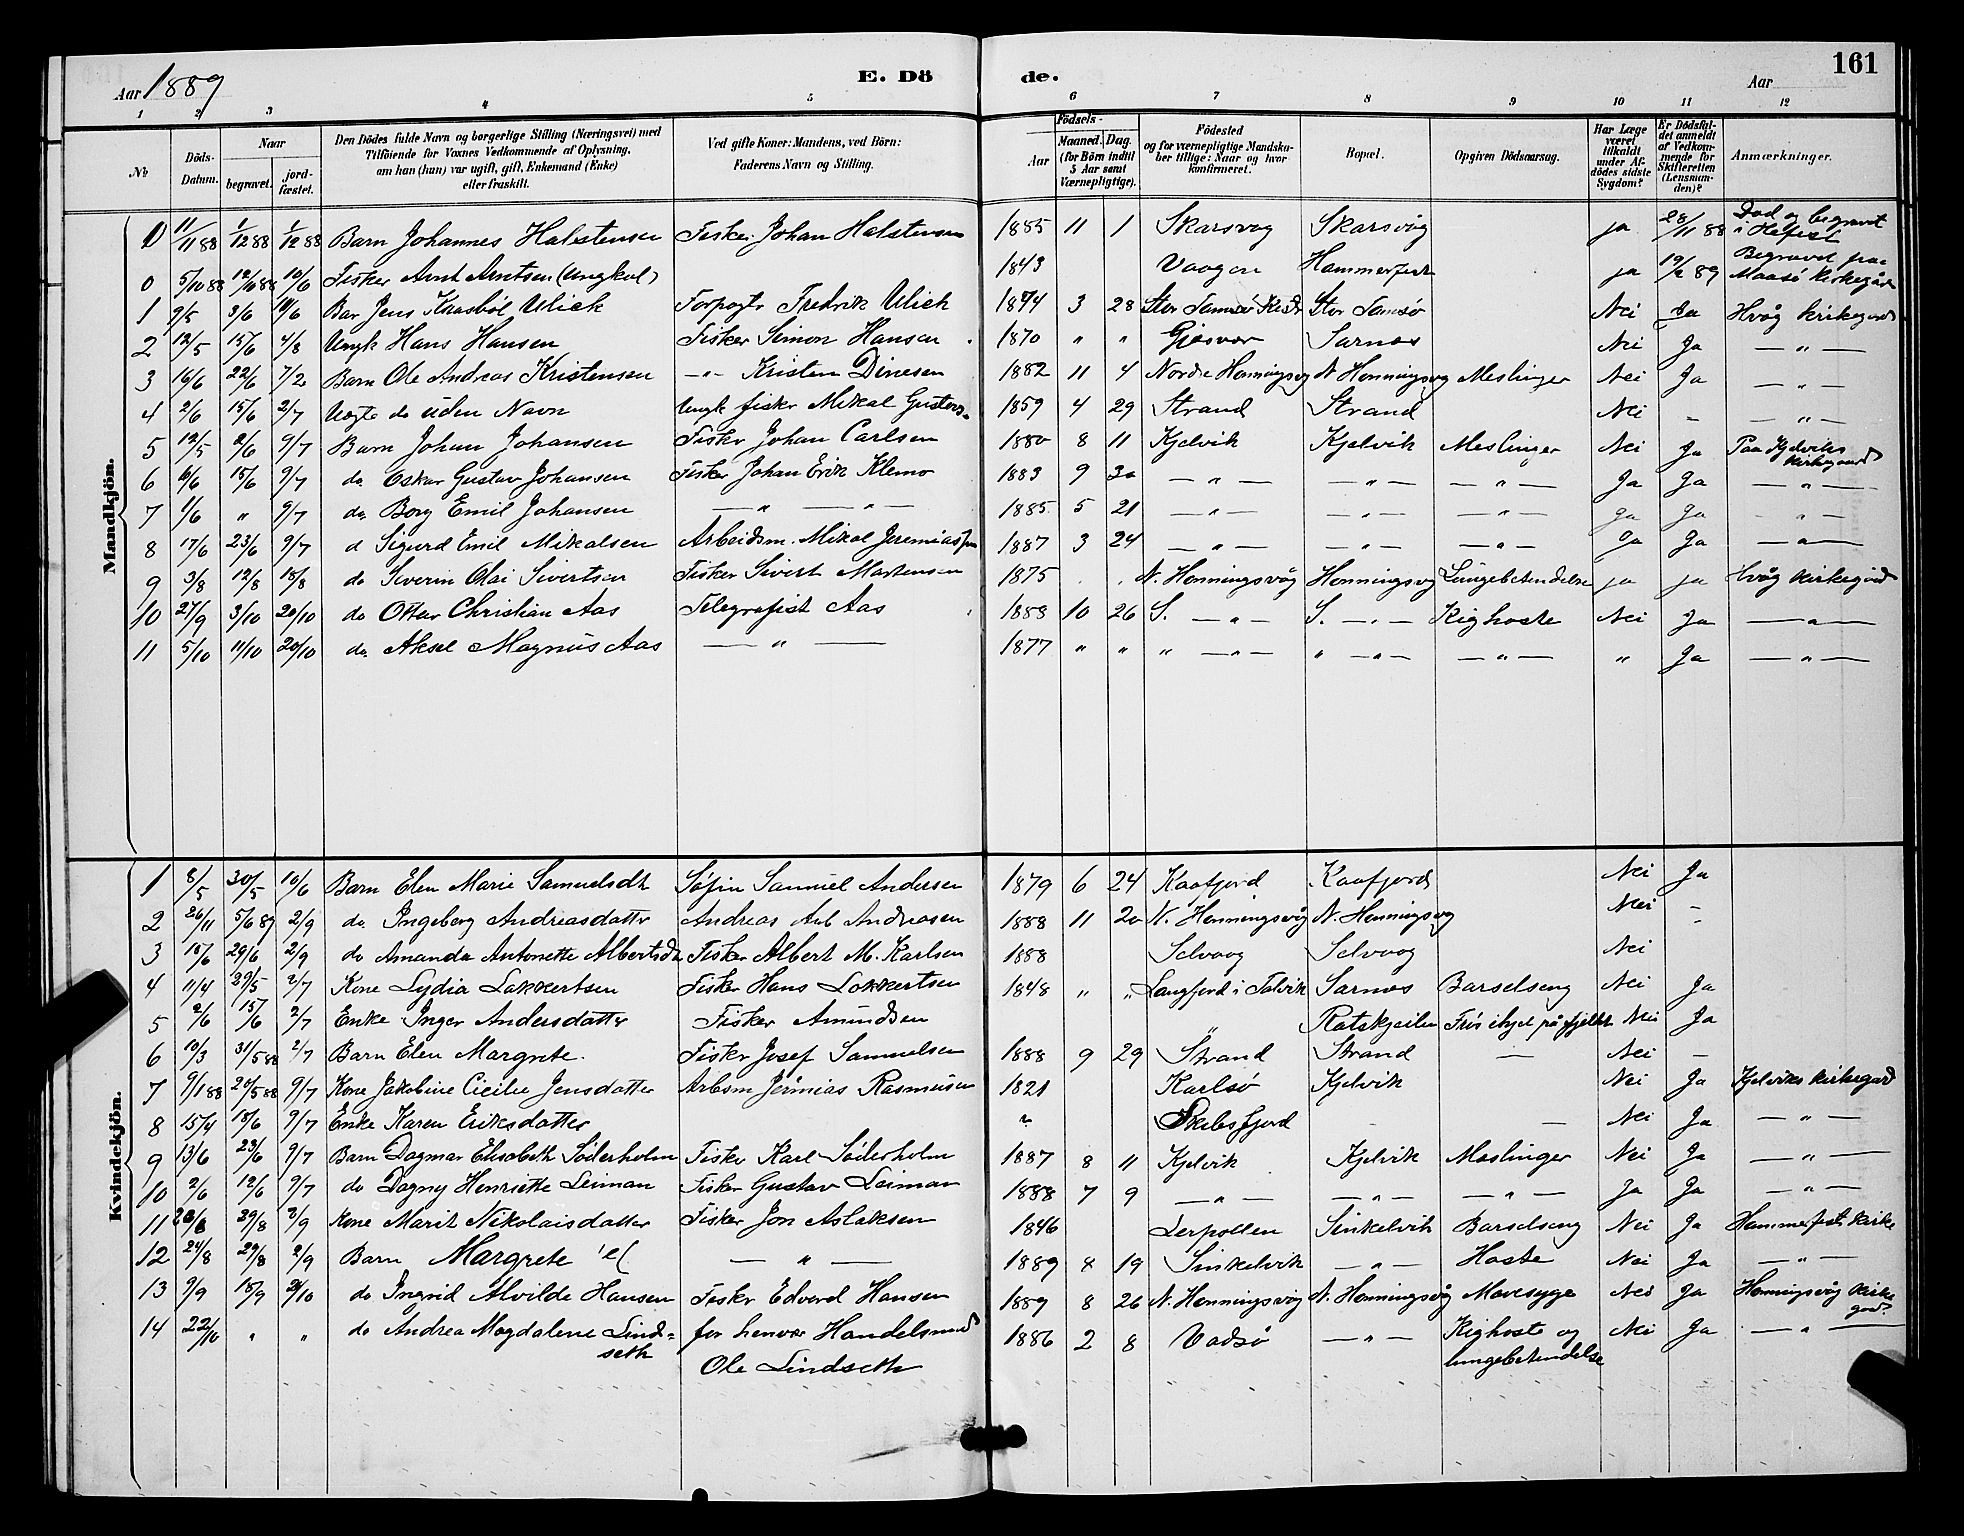 Aar 1889
E. Dö
de.
Aar
161
1 2 3 4 5 6 7 8 9 10 11 12
No
Döds-Datum.
Naar
begravet.
jord-fæstet.
Den Dödes fulde Navn og borgerlige Stilling (Næringsvei) med
Tilföiende for Voxnes Vedkommende af Oplysning,
om han (hun) var ugift, gift, Enkemand (Enke)
eller fraskilt.
Ved gifte Koner: Mandens, ved Börn:
Faderens Navn og Stilling.
Födsels-
Aar
Maaned. Dag.
(for Börn indtil
5 Aar samt
Værnepligtige).
Födested
og for værnepligtige Mandska-
ber tillige: Naar og hvor
konfirmeret.
Bopæl.
Opgiven Dödsaarsag.
Har Læge
været
tilkaldt
under Af-
dödes sidste
Sygdom?
Er Dödsfal-
det anmeldt
af Vedkom-
mende for
Skifteretten
(Lensman-
den)?
Anmærkninger.
Mandkjön.
0 11/11 88 1/12 88 1/12 88 Barn Johannes Halstensen Fisker Johan Halstensen 1885 11 1 Skarsvog Skarsvög ja 28/11 88 Död og begravet i Hafest
0 5/10 88 12/10 88 10/6 Fisker Arnt Arntsen (Ungkal) 1843 Vaagen Hammerfest ja 19/2 89 Begravd paa Maasö Kirkegård
1 9/5 3/6 10/6 Bar Jens Knasböl Ulich Forpagtr Fredrik Ulich 1874 3 28 Stor Tamsö Stor Tamsö Nei Ja Hvåg Kirkegård
2 12/5 15/6 4/8 Ungk Hans Hansen Fisker Simon Hansen 1870 " " Gjesvær Sarnes Nei Ja — " —
3 16/6 22/6 7/2 Barn Ole Andreas Kristensen — " — Kristen Dinesen 1882 11 4 Nordre Honningsvg N Honningsvg Meslinger Nei Ja — " —
4 2/6 15/6 2/7 Uægte do uden Navn Ungk fiskr Mikal Gustavs. 1859 4 29 Strand Strand Nei - — " —
5 12/5 2/6 9/7 Barn Johan Johansen Fiskr Johan Carlsen 1880 8 11 Kjelvik Kjelvik Meslinger Nei Ja Paa Kjelviks Kirkegaard
6 6/6 15/6 9/7 do Oskar Gustav Johansen Fisker Johan Erik Klemo 1883 9 30 — " — — " — — " — Ja Ja — " —
7 1/6 " 9/7 do Borg Emil Johansen — " — — " — 1885 5 21 — " — — " — — " — Ja Ja — " —
8 17/6 23/6 9/7 d Sigurd Emil Mikalsen Arbeidsm. Mikal Jeremiassen 1887 3 24 — " — — " — — " — Ja Ja — " —
9 3/8 12/8 18/8 do Severin Olai Sivertsen Fisker Sivert Martensen 1875 . . N. Honningsvåg Honningsvg Lungebetendelse ja ja Hvåg Kirkegård
10 27/9 3/10 20/10 do Ottar Christian Aas Telegrafist Aas 1883 10 26 S. — " — S. — " — Kighoste Nei Ja — " —
11 5/10 11/10 20/10 do Aksel Magnus Aas — " — 1877 " " " — " — " — " — — " — " Ja — " —
Kvindekjön.
1 8/5 30/5 10/6 Barn Elen Marie Samuelsdtr Søfin Samuel Andersen 1879 6 24 Kaafjord Kaafjord Nei Ja
2 26/11 5/6 89 2/9 do Ingeborg Andreasdatter Andreas Arb Andreasen 1888 11 20 N. Honningsvåg N. Honningsvg Nei -
3 15/6 29/6 2/9 do Amanda Antonette Albertsdtr Fisker Albert M. Karlsen 1888 Selvaag Selvaag Nei
4 11/4 29/5 2/7 Kone Lydia Lokkertsen Fisker Hans Lokkertsen 1848 " " Langfjord i Talvik Sarnes Barselseng Nei Ja
5 2/6 15/6 2/7 Enke Inger Andersdatter Fisker Amundsen " Ratskjeilen Frös ihjel på fjeldet Nei Ja
6 10/3 31/5 88 2/7 Barn Elen Margrete Fisker Josef Samuelsen 1888 9 29 Strand Strand — Nei -
7 9/1 88 20/5 88 9/7 Kone Jakobine Cicilie Jensdatter Arbsm Jermias Rasmusen 1821 Karlsø Kjelvik Nei Ja Kjelviks Kirkegård
8 15/4 18/6 9/7 Enke Karen Eriksdatter " Skibsfjord — Nei Ja — " —
9 13/6 23/6 9/7 Barn Dagmar Elisabeth Söderholm Fiskr Karl Söderholm 1887 8 11 Kjelvik Kjelvik Maslinger Nei Ja — " —
10 2/6 12/6 9/7 do Dagny Henriette Leiman Fisker Gustav Leiman 1888 7 9 — " — — " — — " — Ja Ja — " —
11 23/8 29/8 2/9 Kone Marit Nikolaisdatter Fisker Jon Aslaksen 1846 Lerpollen Sinkelvik Barselseng Nei Ja Hammerfest Kirke
12 24/8 29/8 2/9 Barn Margrete — " — 1889 8 19 Sinkelvik — " — Hoste Nei Ja — " —
13 9/9 18/9 2/10 do Ingrid Alvilde Hansen Fisker Edvard Hansen 1889 8 26 N. Honningsvåg N. Honningsvåg Mavesyge Nei Ja Honningsvåg Kirkegrd.
14 22/10 " " do Andrea Magdalene Lindseth for henvær Handelsmand 1886 2 8 Vadsø — " — Kighoste og Nei Ja — " —
Ole Lindseth lungebetendelse